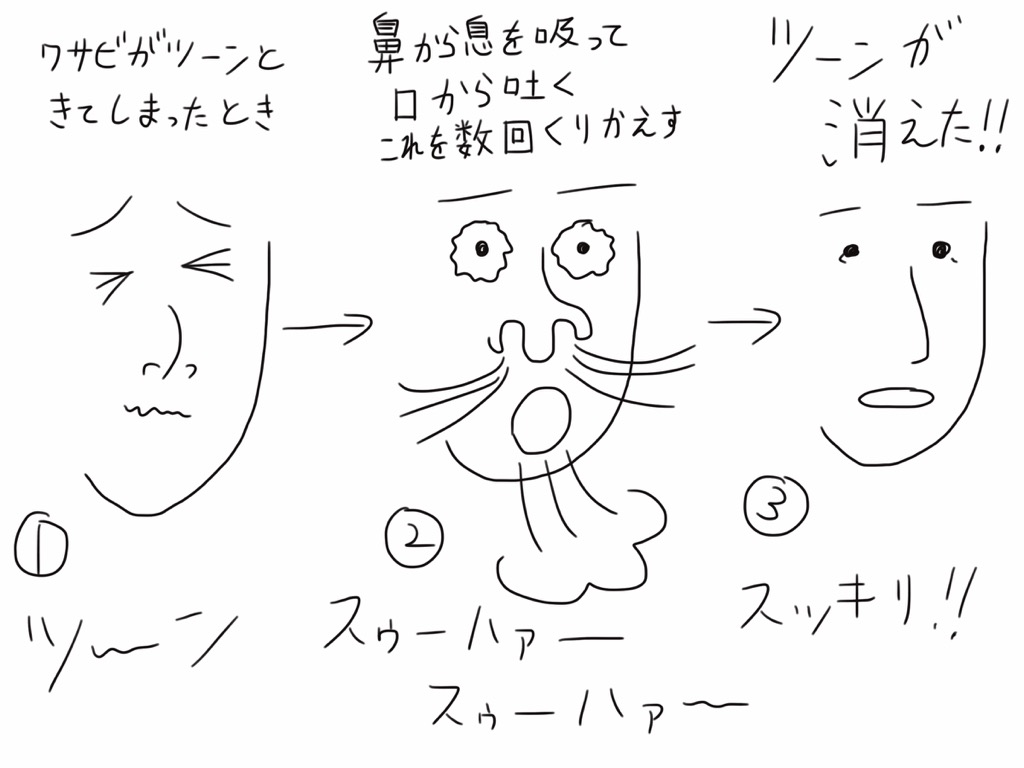 ワサビがツーンと
きてしまったとき
鼻から息を吸って
口から吐く
これを数回くりかえす
ツーンが
消えた!!
①
ツ〜ン
②
スゥーハァー
スゥーハァ〜
③
スッキリ!!